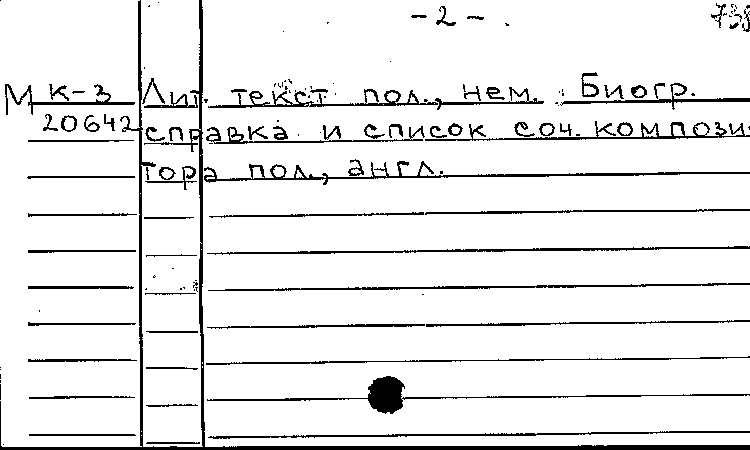 -2-.
738
М к-3 Лит. текст пол., нем. Биогр.
20642 справка и список соч. компози-
тора пол., англ.